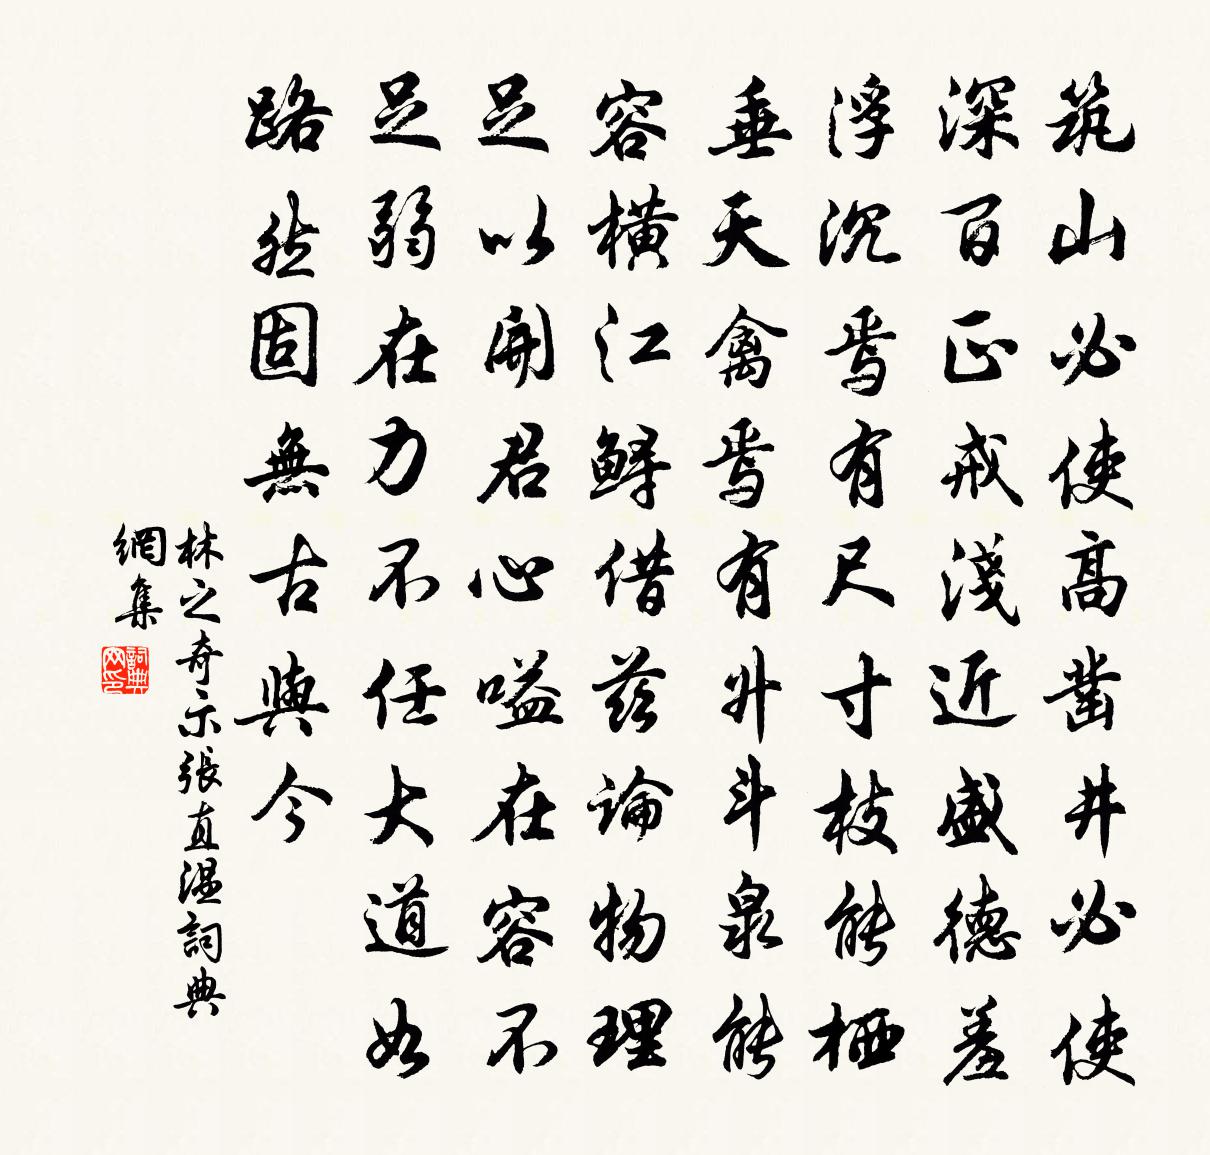 筑山必使高凿井必使
深百正戒淺近盛德羞
浮沉焉有尺寸枝能栖
垂天禽焉有升斗泉能
容横江鲟借兹論物理
足以開君心嗌在容不
足弱在力不任大道如
路然固無古與今
林之奇示張直温詞典
網集
詞典网印